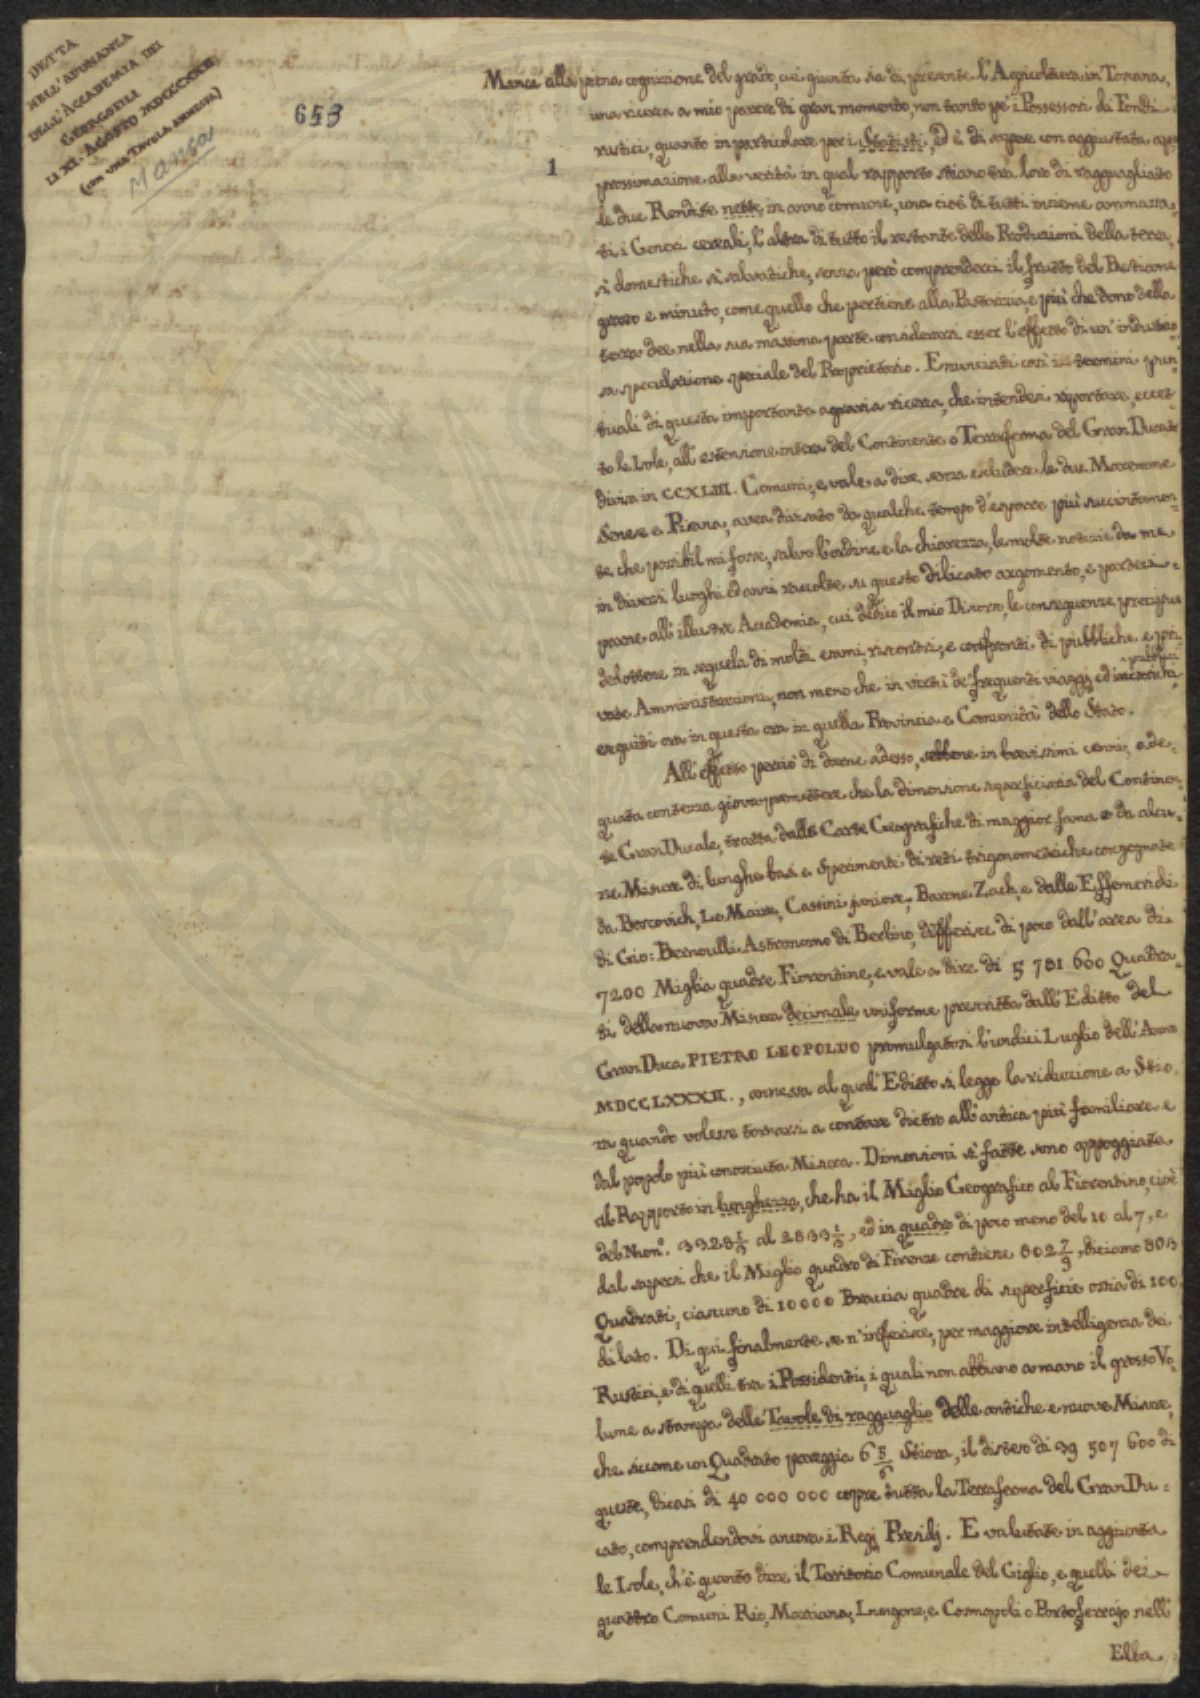 DETTA
NELL'ADUNANZA
DELL'ACCADEMIA DEI
GEORGOFILI
LI XI. AGOSTO MDCCCXXII
(CON UNA TAVOLA ANNESSA)
Manca
653
1
Manca alla piena cognizione del grado, cui giunta sia di presente l'Agricoltura in Toscana,
una ricerca a mio parere di gran momento, non tanto pe' i Possessori di Fondi
rustici, quanto in particolare per i Statisti, ed è di sapere con aggiustata ap=
prossimazione alla verità in qual rapporto stiano tra loro di ragguagliato
le due Rendite nette in anno comune, una cioè di tutti insieme ammassa=
ti i Generi cereali, l'altra di tutto il restante delle Produzioni della terra,
sì domestiche sì salvatiche, senza però comprenderci il frutto del Bestiame
grosso e minuto, come quello che pertiene alla Pastorizia, e più che dono della
terra dee nella sua massima parte considerarsi esser l'effetto di un' industrio=
sa speculazione speciale del Proprietario. Enunciati così i termini pun=
tuali di questa importante agraria ricerca, che intendesi riportare, eccet=
to le Isole, all'estensione intera del Continente o Terraferma del Gran Ducato
divisa in CCXLIII. Comuni, e vale a dire senza escludere le due Maremme
Senese e Pisana, avea divisato da qualche tempo d'esporre più succintamen=
te che possibil mi fosse, salvo l'ordine e la chiarezza, le molte notizie da me
in diversi luoghi ed anni raccolte su questo dilicato argomento, e parteci=
parne all'illustre Accademia, cui dedico il mio Discorso, le conseguenze precipue
dedottene in sequela di molti esami, riscontri, e confronti di pubbliche e pri=
vate Amministrazioni, non meno che in virtù de' frequenti viaggi ed
eseguiti ora in questa ora in quella Provincia e Comunità dello Stato.
All'effetto perciò di darne adesso, sebbene in brevissimi cenni, ade=
quata contezza giova premettere che la dimensione superficiaria del Continen=
te Gran Ducale, tratta dalle Carte Geografiche di maggior fama e da alcu=
ne Misure di lunghe basi e Sperimenti di reti trigonometriche congegnate
da Boscovich, Le Maire, Cassini juniore, Barone Zach, e dalle Effemeridi
di Gio: Bernoulli Astronomo di Berlino, differisce di poco dall'area di
7200 Miglia quadre Fiorentine, e vale a dire di 5 781 600 Quadra=
ti della nuova Misura decimale uniforme prescritta dall'Editto del
Gran Duca PIETRO LEOPOLDO promulgatosi l'undici Luglio dell'Anno
MDCCLXXXII., annessa al qual' Editto si legge la riduzione a Stio=
ra quando volesse tornarsi a contare dietro all'antica più familiare e
dal popolo più conosciuta Misura. Dimensioni sì fatte sono appoggiate
al Rapporto in lunghezza, che ha il Miglio Geografico al Fiorentino, cioè
del Num°. 3328 al 2833 1/3, ed in quadro di poco meno del 10 al 7, e
dal sapersi che il Miglio quadro di Firenze contiene 802 7/9, diciamo 803
Quadrati, ciascuno di 10000 Braccia quadre di superficie ossia di 100
di lato. Di qui finalmente se n'inferisce, per maggiore intelligenza dei
Rustici, e di quelli tra i Possidenti, i quali non abbiano a mano il grosso Vo=
lume a stampa delle Tavole di ragguaglio delle antiche e nuove Misure,
che siccome un Quadrato pareggia 6 5/6 Stiora, il disteso di 39 507 600 di
queste, dicasi di 40 000 000 copre tutta la Terraferma del Gran Du=
cato, comprendendovi ancora i Regj Presidj. E valutate in aggiunta
le Isole, ch'è quanto dire il Territorio Comunale del Giglio, e quelli dei
quattro Comuni Rio, Marciana, Lungone, e Cosmopoli o Portoferrajo nell'
Elba.